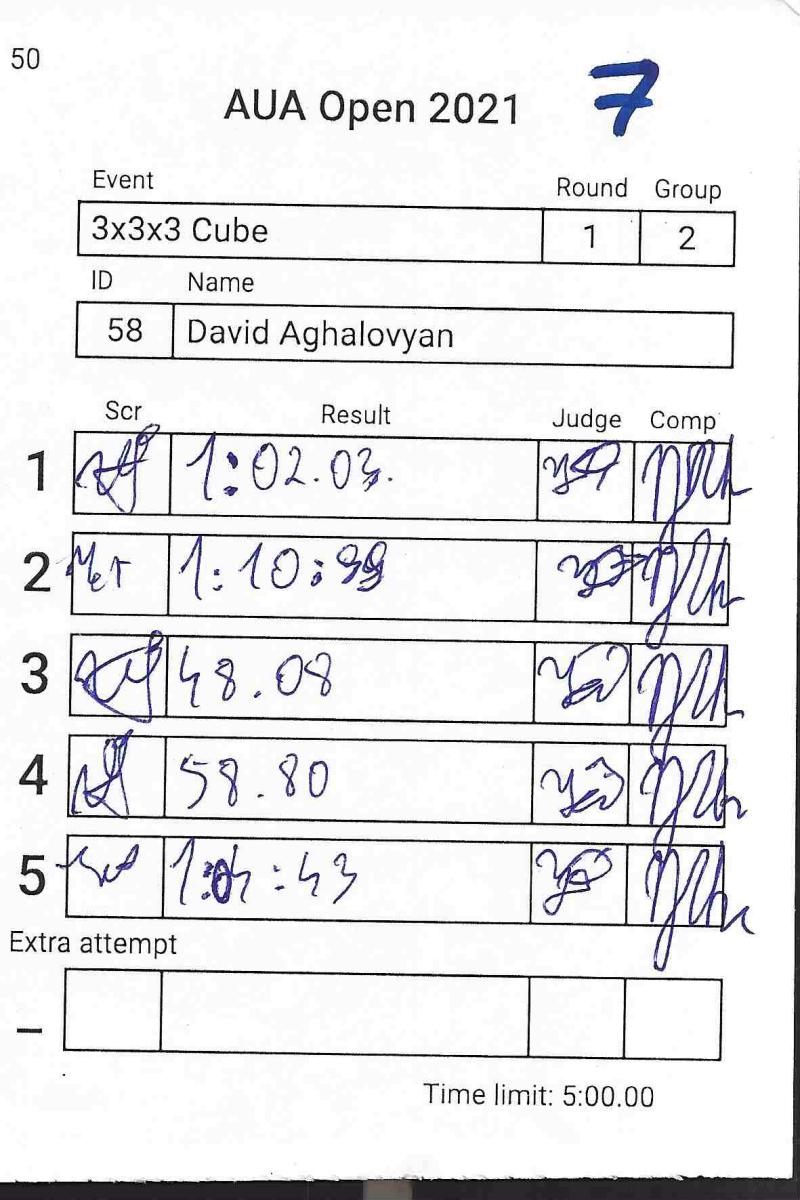 50
AUA Open 2021 7
Event Round Group
3x3x3 Cube 1 2
ID Name
58 David Aghalovyan
Scr Result Judge Comp
1 1:02.03.
2 1:10:99
3 48.08
4 58.80
5 1:04:43
Extra attempt
_
Time limit: 5:00.00